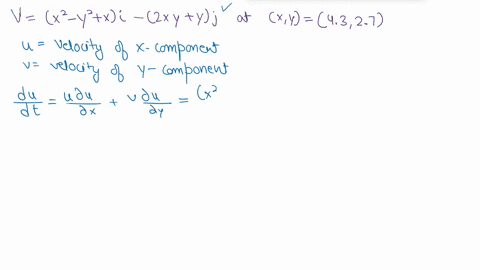 V = (x²-y²+x)i - (2xy+y)j ✓ at (x,y) = (4.3, 2.7)
u = velocity of x-component
v = velocity of y-component
du/dt = u∂u/∂x + v ∂u/∂y = (x²